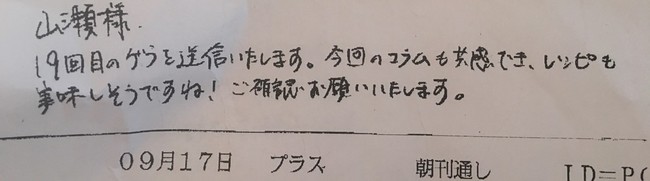 山瀬様.
19回目のゲラを送信いたします。今回のコラムも共感でき、レシピも
美味しそうですね！ご確認お願いいたします。
09月17日 プラス 朝刊通し ID=P(